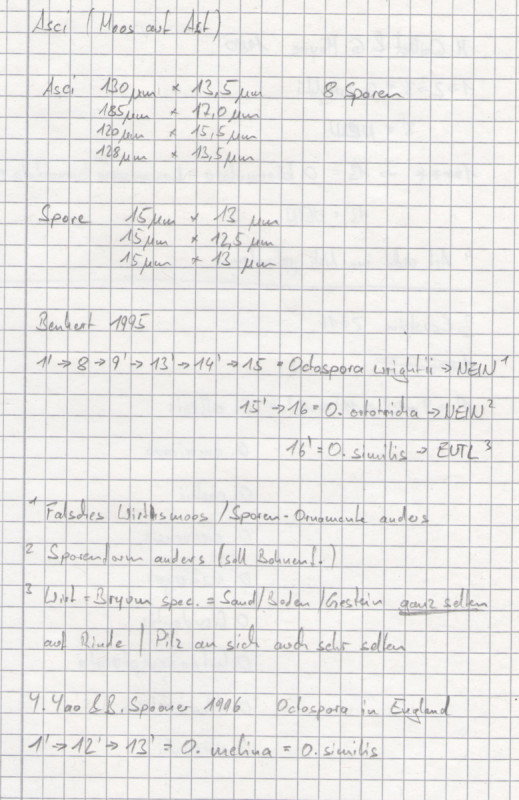 Asci (Moos auf Ast)
Asci 130µm × 13,5µm 8 Sporen
185µm × 17,0µm
120µm × 15,5µm
128µm × 13,5µm
Spore 15µm × 13 µm
15µm × 12,5µm
15µm × 13 µm
Benkert 1995
1' → 8 → 9' → 13' → 14' → 15 = Octospora wrightii → NEIN¹
15' → 16 = O. → NEIN²
16' = O. similis → EVTL³
¹ Falsches Wirtsmoos / Sporen-Ornamente anders
² Sporenform anders (soll Bohnenf.)
³ Wirt = Bryum spec. = Sand/Boden/Gestein ganz selten
auf Rinde / Pilz an sich auch sehr selten
Y. Yao & B. Spooner 1996 Octospora in England
1' → 12' → 13' = O. melina = O. similis